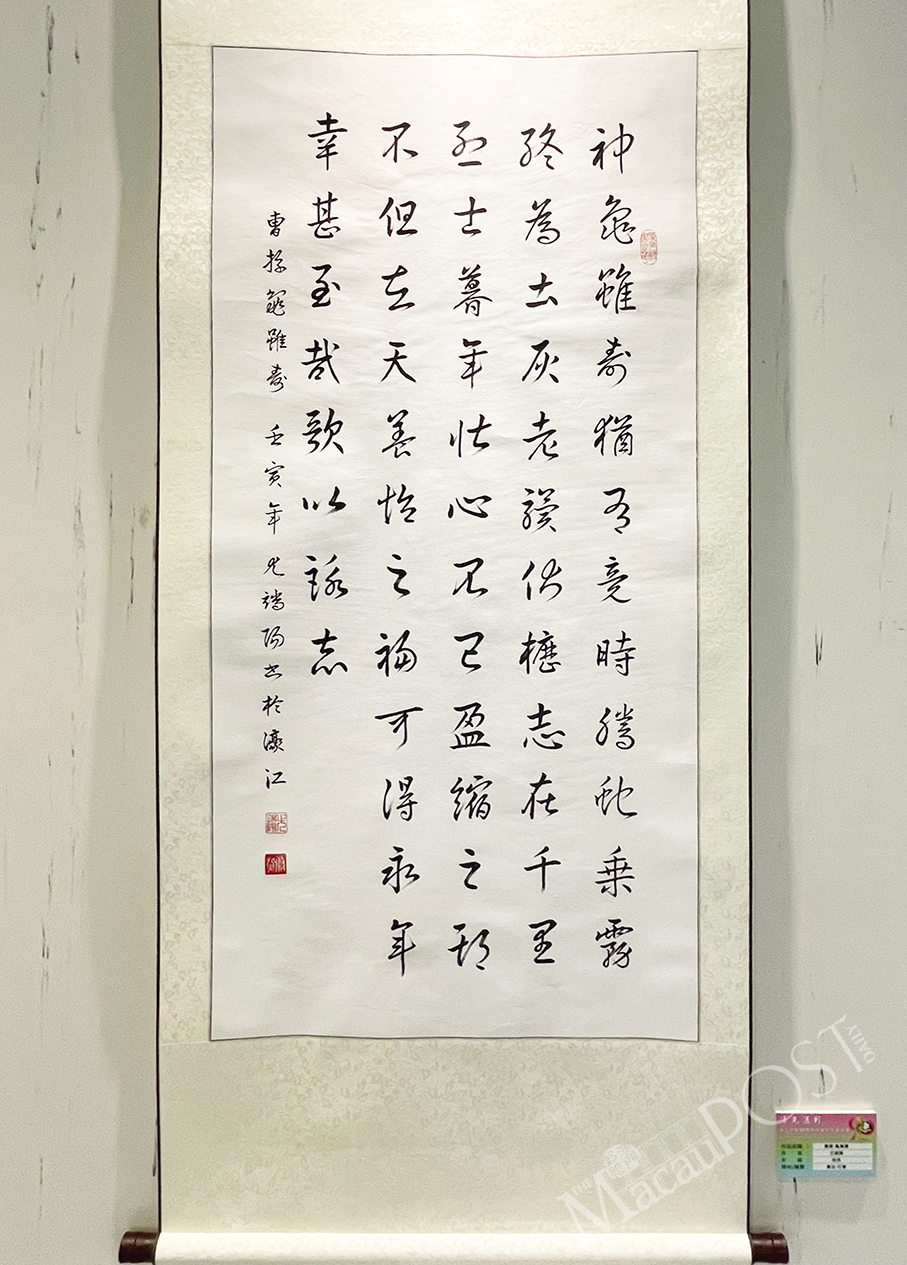 神龜雖壽猶有竟時騰蛇乘霧
終為土灰老驥伏櫪志在千里
烈士暮年壯心不已盈縮之期
不但在天養怡之福可得永年
幸甚至哉歌以詠志
曹操龜雖壽 壬寅年 端陽書於濠江
THE Macau POST DAILY